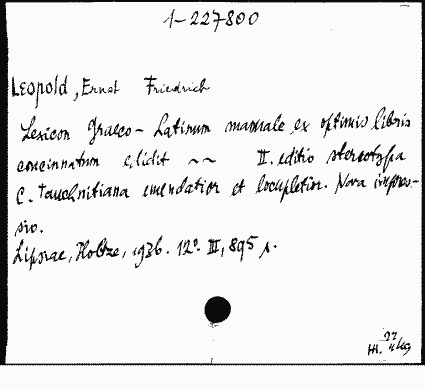 1-227800
Leopold, Ernst Friedrich
Lexicon Graeco-Latinum manuale ex optimis libris
concinnatum edidit ~~ II. editio stereotypa
C. Tauchnitiana emendatior et locupletior. Nova impres-
sio.
Lipsiae, Holtze, 1936. 12°. III, 895 p.